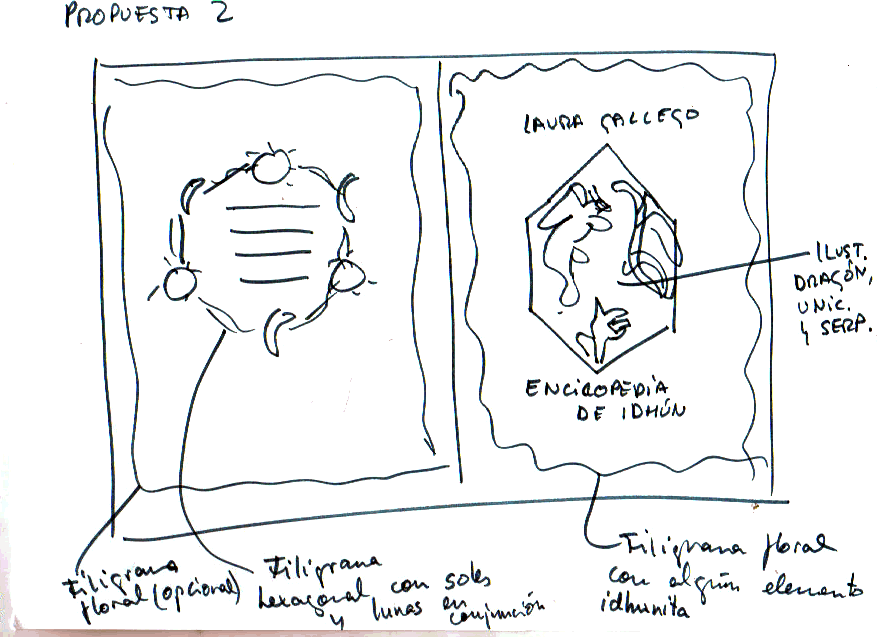 PROPUESTA 2
LAURA GALLEGO
ILUST.
DRAGÓN,
UNIC.
Y SERP.
ENCICLOPEDIA
DE IDHÚN
Filigrana
floral (opcional)
Filigrana
hexagonal con soles
y lunas en
conjunción
Filigrana floral
con algún elemento
idhunita